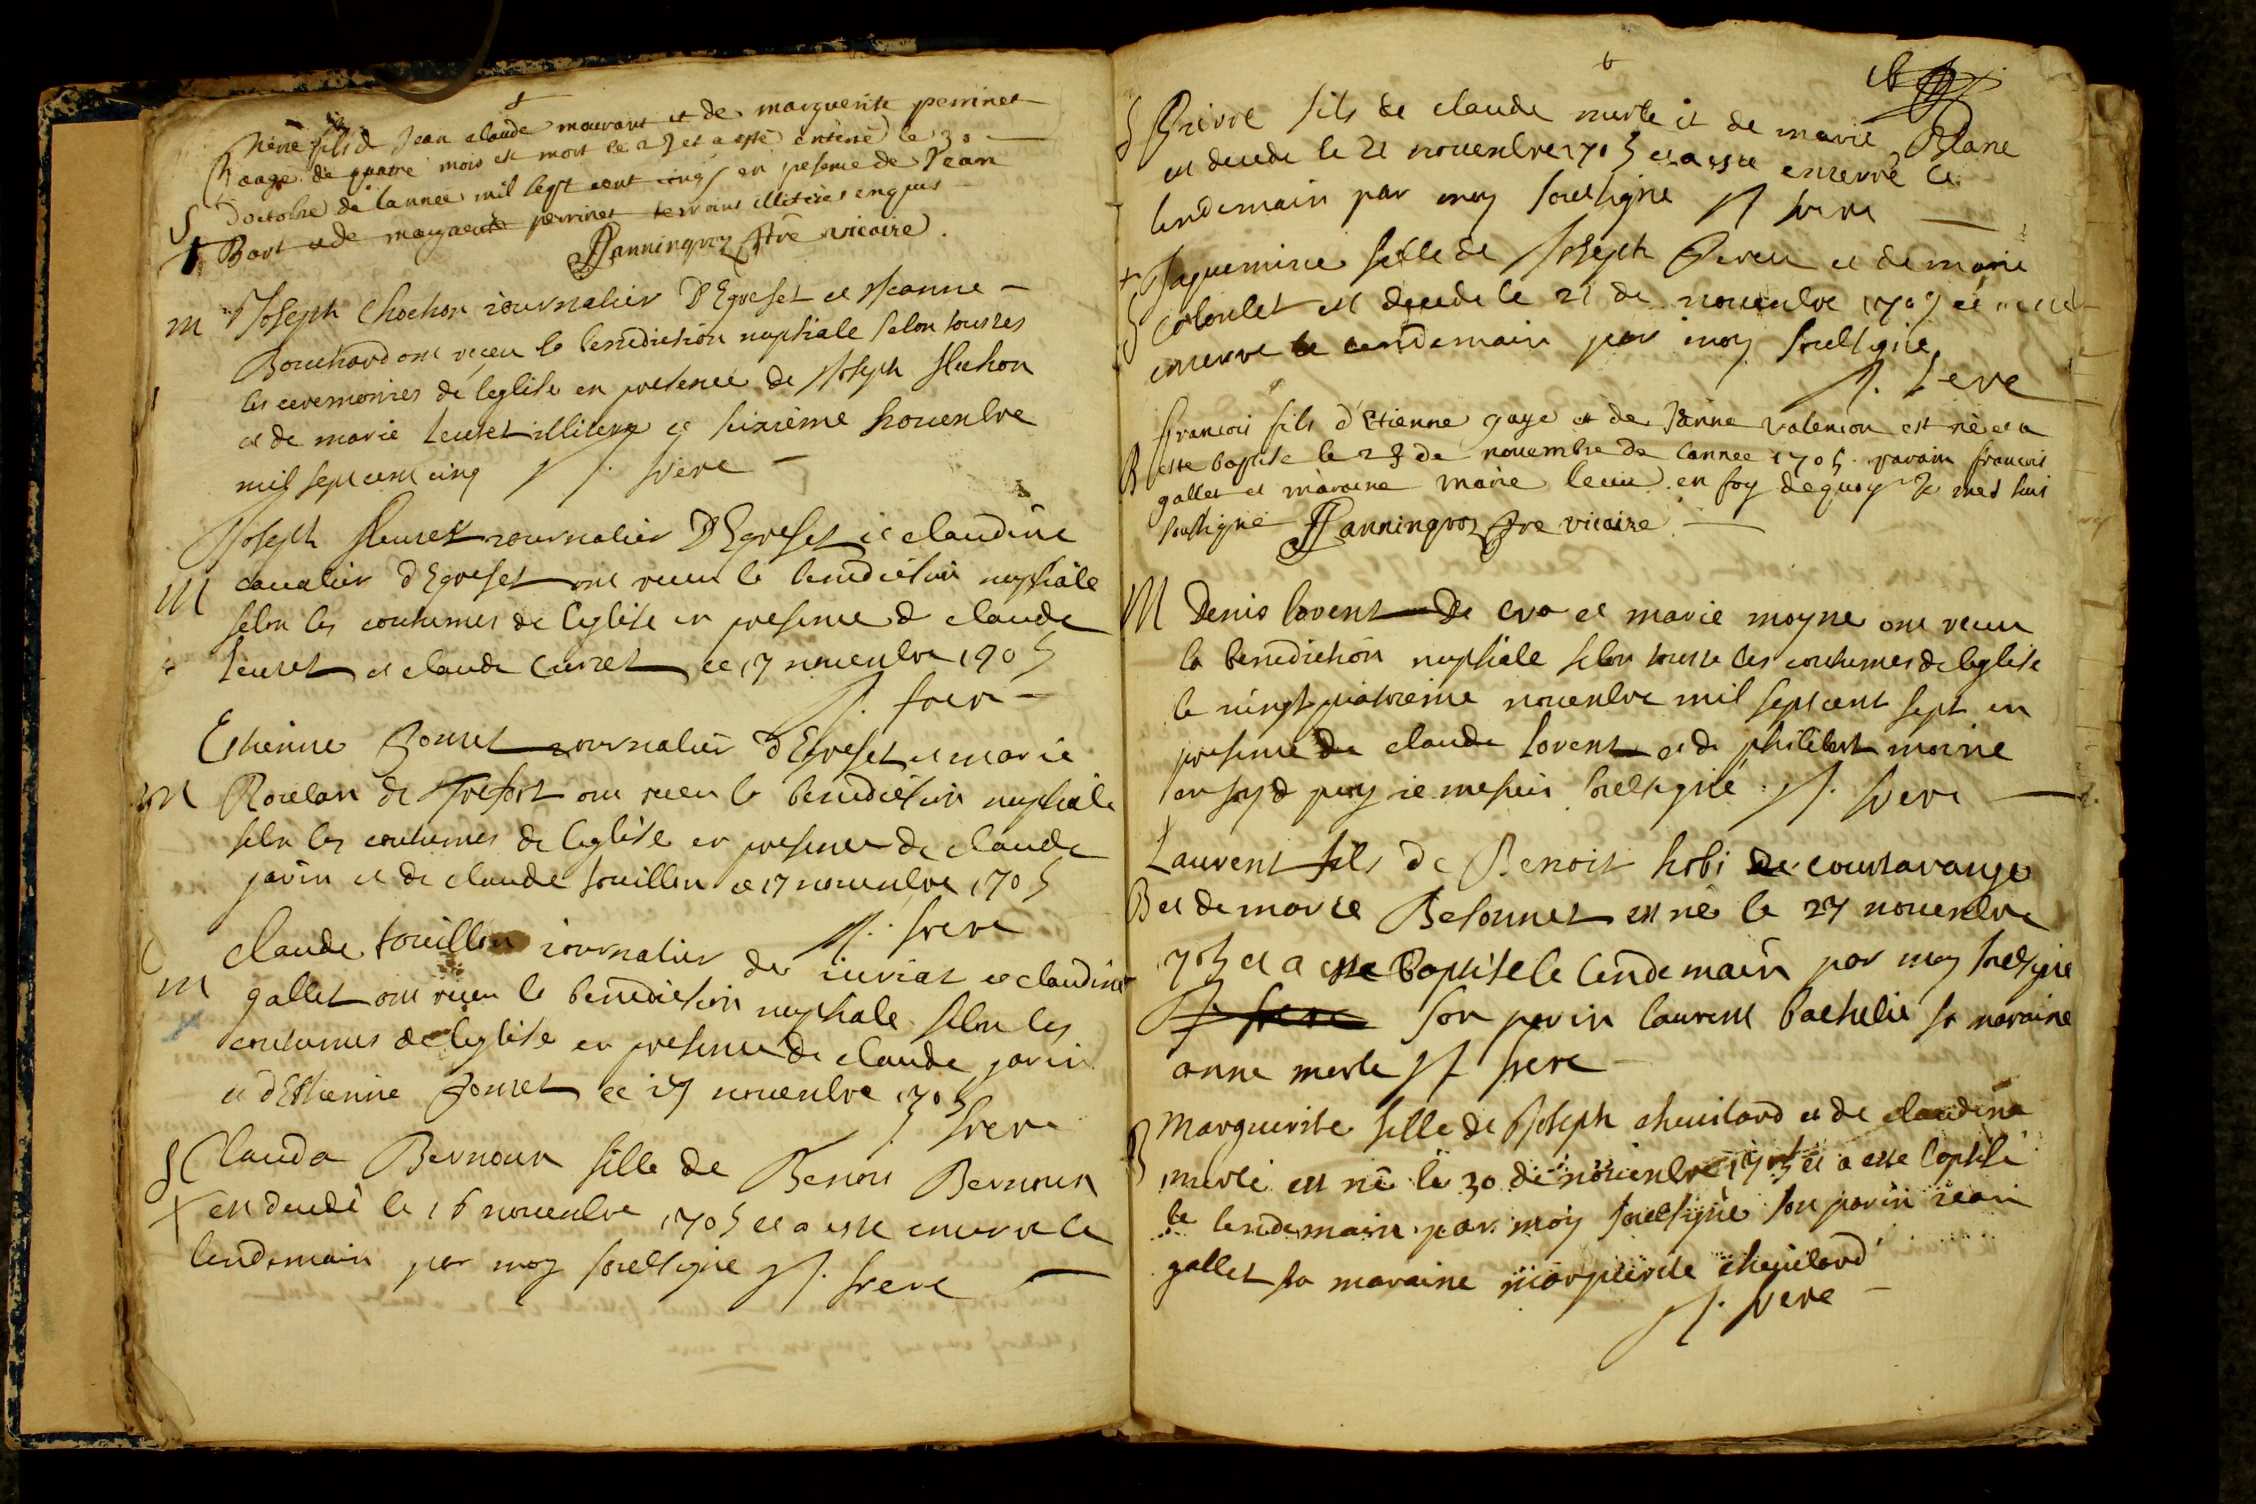 fils de Jean claude mauvais et de marguerite perrinet
aagé de quatre mois est mort le 29 et a esté enterré le 30
doctobre de l'année mil sept cent cinq en presence de Jean
Bort et de marguerite perrinet temoins illiteres enquis
Janningroz ptre vicaire
M Joseph Chochon iournalier D'Egreset et Jeanne
Bouchard ont receu la benediction nuptiale selon toustes
les ceremonies de leglise en presence de Joseph
et de marie illitere ce sixième novembre
mil sept cent cinq J. frere
Joseph iournalier D'Egreset et claudine
M cavalier d'Egreset ont receu la benediction nuptiale
selon les coutumes de leglise en presence d claude
et claude ce 17 novembre 1705
J. frere
Estienne iournalier d'Egreset et marie
M de Trefort ont receu la benediction nuptiale
selon les coutumes de leglise en presence de claude
parin et de claude souillon ce 17 novembre 1705
J. frere
claude souillon iournalier de iuvriat et claudine
M gallet ont receu la benediction nuptiale selon les
coutumes de leglise en presence de claude parin
et d'Estienne ce 17 novembre 1705
J. frere
S Clauda Bernoux fille de Benoit Bernoux
est decedé le 16 novembre 1705 et a esté enterré le
lendemain par moy soussigné J. frere
S Pierre fils de claude merle et de marie Blanc
est decedé le 21 novembre 1705 et a esté enterré le
lendemain par moy soussigné J frere
Jaquemine fille de Joseph et de marie
S est decedé le 21 de novembre 1705 et
enterré le lendemain par moy soussigné
J. frere
francois fils d'Etienne gaye et de Janne valencon est né et a
B esté baptisé le 23 de novembre de lannee 1705 parain francois
gallet et maraine marie en foy dequoy Je me suis
soussigné Janningroz ptre vicaire
M Denis lorent de cra et marie moyne ont receu
la benediction nuptiale selon touste les coutumes de leglise
le vingt quatrieme novembre mil sept cent sept en
presence de claude lorent et de philibert moine
en foy d quoy ie me suis soussigné J. frere
Laurent fils de Benoit hobi de courtavange
B et de marie Besonnet est né le 27 novembre
1705 et a esté Baptisé le lendemain par moy soussigné
J. frere son parin laurent bachelie sa maraine
anne merle J frere
B Marguerite fille de Joseph chevilard et de claudina
merle est né le 30 de novembre 1705 et a esté baptisé
le lendemain par moy soussigné son parin iean
gallet sa maraine marguerite chevilard
J. frere